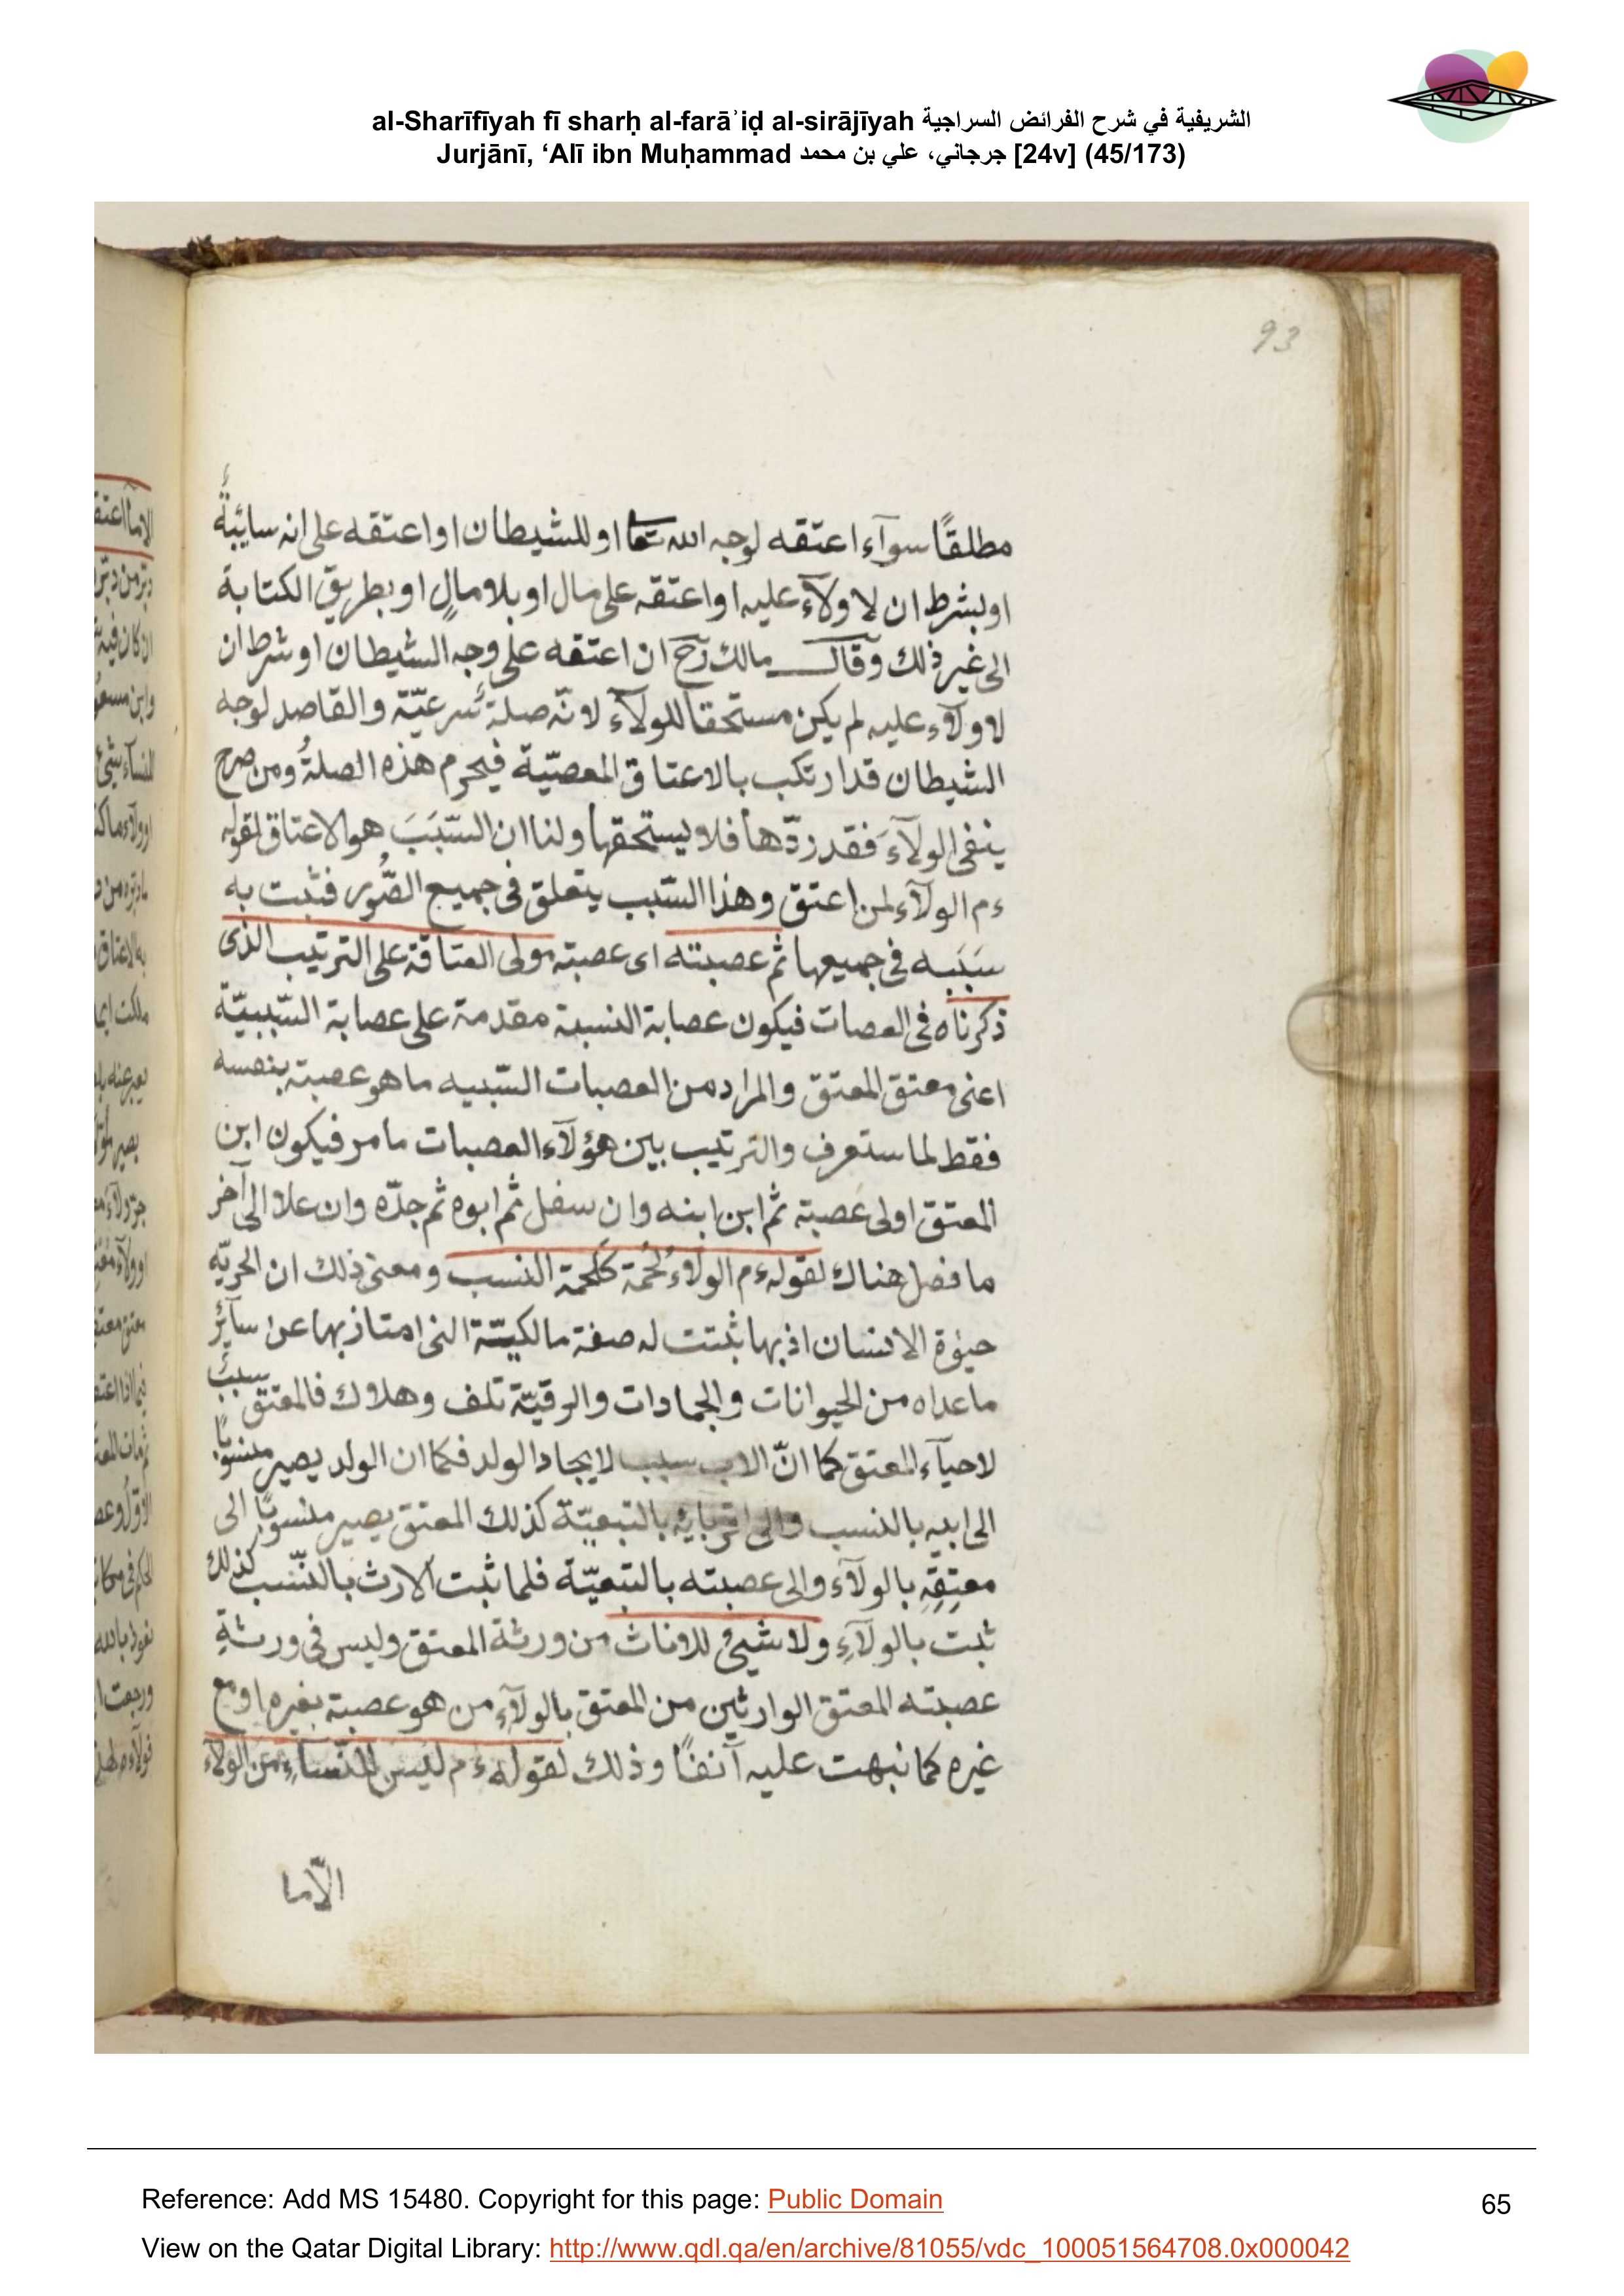 al-Sharīfīyah fī sharḥ al-farāʾiḍ al-sirājīyah الشريفية في شرح الفرائض السراجية
Jurjānī, ‘Alī ibn Muḥammad جرجاني، علي بن محمد [24v] (45/173)
93
مطلقًا سوآء اعتقه لوجه الله تعا او للشيطان او اعتقه على انه سائبةً
او بشرط ان لا ولآء عليه او اعتقه على مال او بلا مالٍ او بطريق الكتابة
الى غير ذلك وقال مالك رح ان اعتقه على وجه الشيطان او شرط ان
لا ولآء عليه لم يكن مستحقا للولآء لانّه صلة شرعيّة والقاصد لوجه
الشيطان قد ارتكب بالاعتاق المعصيّة فيحرم هذه الصلةُ ومن صرح
ينفى الولآءَ فقد ردّها فلا يستحقها ولنا ان السّبَبَ هو الاعتاق لقوله
ءم الولآء لمن اعتق وهذا السّبب يتعلق فى جميع الصُّور فثبت به
سَبَبه فى جميعها ثم عصبته اى عصبته مولى العتاقة على الترتيب الذى
ذكرناه فى العصات فيكون عصابة النسبة مقدمة على عصابة السّببيّة
اعنى معتق المعتق والمراد من العصبات السّببيه ما هو عصبة بنفسه
فقط لما ستعرف والترتيب بين هؤلآء العصبات ما مر فيكون ابن
المعتق اولى عصبته ثم ابن ابنه وان سفل ثم ابوه ثم جدّه وان علا الى آخر
ما فصل هناك لقوله ءم الولآء لُحْمَة كَلُحمة النسب ومعنى ذلك ان الحريّه
حيٰوة الانسان اذ بها ثبتت له صفة مالكيّة التى امتاز بها عن سآئر
ما عداه من الحيوانات والجمادات والرقيّة تلف وهلاك فالمعتق سببٌ
لاحيآء المعتق كما انّ الاب سبب لايجاد الولد فكما ان الولد يصير منسوبًا
الى ابيه بالنسب والى اقربايه بالتبعيّة كذلك المعتق يصير منسوبًا الى
معتِقِهِ بالولآء والى عصبته بالتبعيّة فلما ثبت الارث بالنّسب كذلك
ثبت بالولآءِ ولا شيئ للاناث من ورثة المعتق وليس فى ورثةِ
عصبته المعتق الوارثين من المعتق بالولآء من هو عصبة بغيره او مع
غيره كما نبهت عليه آنفًا وذلك لقوله ءم ليس للنّساء من الولآء
الّا ما
Reference: Add MS 15480. Copyright for this page: Public Domain
65
View on the Qatar Digital Library: http://www.qdl.qa/en/archive/81055/vdc_100051564708.0x000042